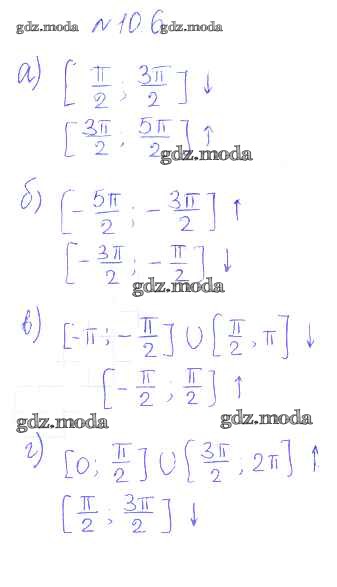 gdz.moda № 10.6 gdz.moda
а) [π/2; 3π/2] ↓
[3π/2; 5π/2] ↑
gdz.moda
б) [-5π/2; -3π/2] ↑
[-3π/2; -π/2] ↓
gdz.moda
в) [-π; -π/2] ∪ [π/2, π] ↓
[-π/2; π/2] ↑
gdz.moda gdz.moda
г) [0; π/2] ∪ [3π/2; 2π] ↑
[π/2; 3π/2] ↓